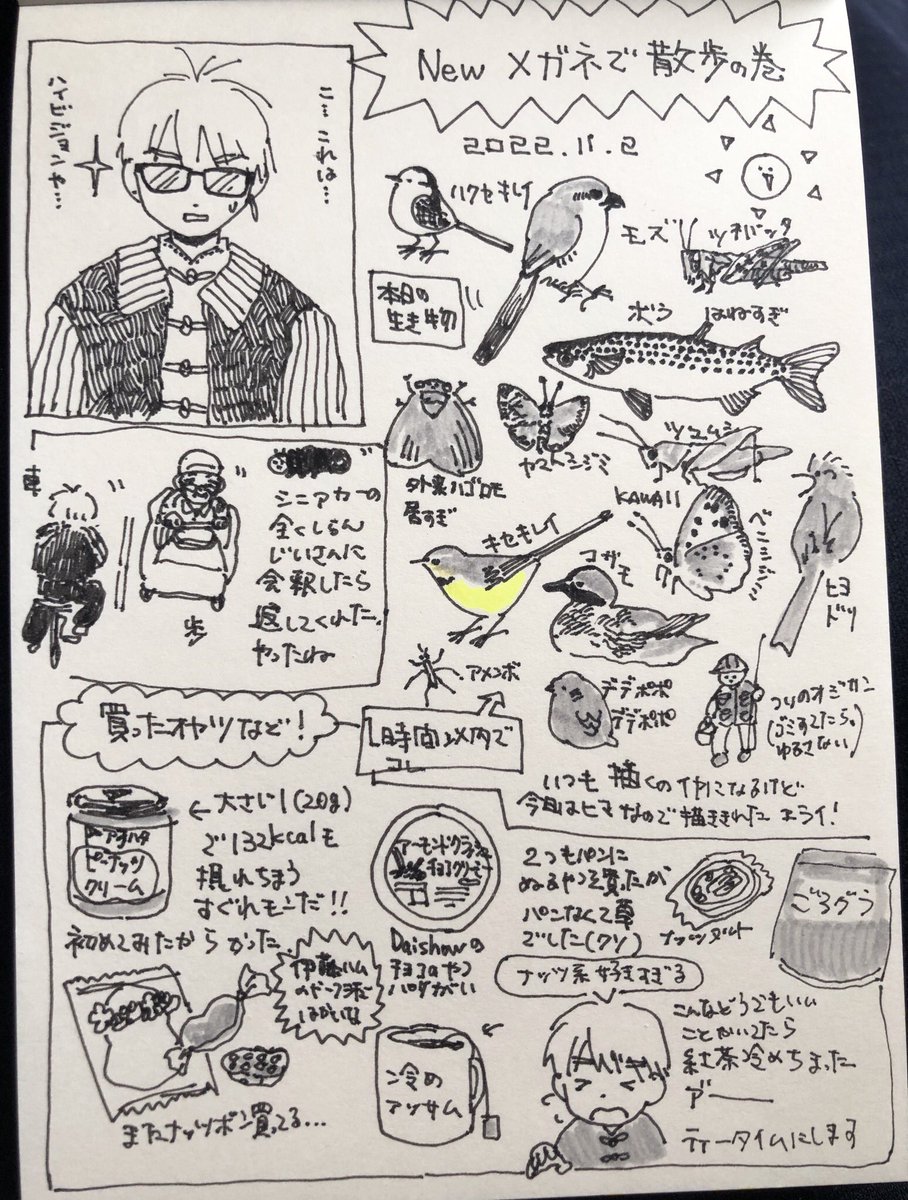 New メガネで散歩の巻
2022.11.2
こ…これは…
ハイビジョンや…
ハクセキレイ
モズ
ツチバッタ
本日の
生き物
ボラ はねすぎ
外来ハゴロモ
居すぎ
ヤマトシジミ
ツユムシ
KAWAII
ベニシジミ
キセキレイ
コガモ
ヒヨドリ
アメンボ
デデポポ
デデポポ
つりのオジサン
(ゴミすてたら。
ゆるさない)
1時間以内で
コレ
いつも描くのイヤになるけど
今日はヒマなので描ききれた エライ!
歩
シニアカーの
全くしらん
じいさんに
会釈したら
返してくれた。
やったね
買ったオヤツなど!
アヲハタ
ピーナッツ
クリーム
←大さじ1(20g)
で132kcalも
摂れちまう
すぐれモンだ!!
初めてみたからかった。
アーモンドクラッシュ
チョコクリーム
Daishowの
チョコのやつ
ハダがいい
2つもパンに
ぬるやつを買ったが
パンなくて草
でした(クソ)
ナッツタルト
ごろグラ
ナッツ系好きすぎる
伊藤ハム
またナッツボン買ってる…
冷め
アッサム
こんなどうでもいい
ことかいてたら
紅茶冷めちまった
ティータイムにします